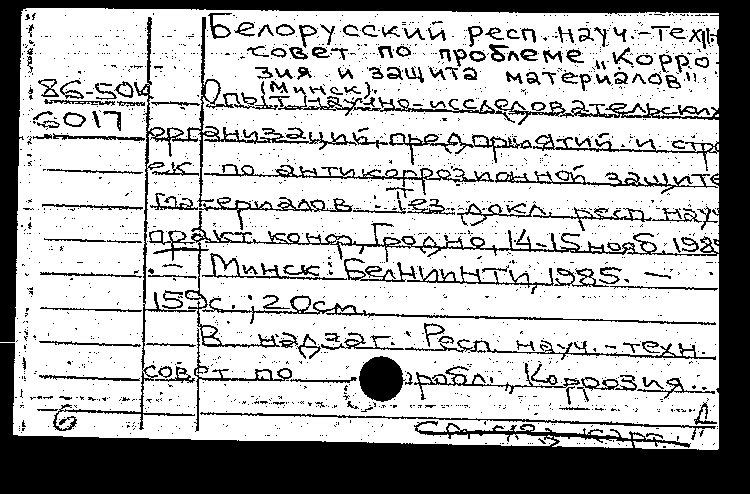 Белорусский респ. науч.-техн
совет по проблеме „Корро-
зия и защита материалов"
(Минск).
86-50к Опыт научно-исследовательских
6017 организаций, предприятий и стро
ек по антикоррозионной защите
материалов : Тез. докл. респ. науч
практ. конф., Гродно, 14-15 нояб. 1985
. — Минск : БелНИИНТИ, 1985. —
159с. ; 20см.
В надзаг. : Респ. науч.-техн.
совет по пробл. „Коррозия...
6 А
См. след. карт.